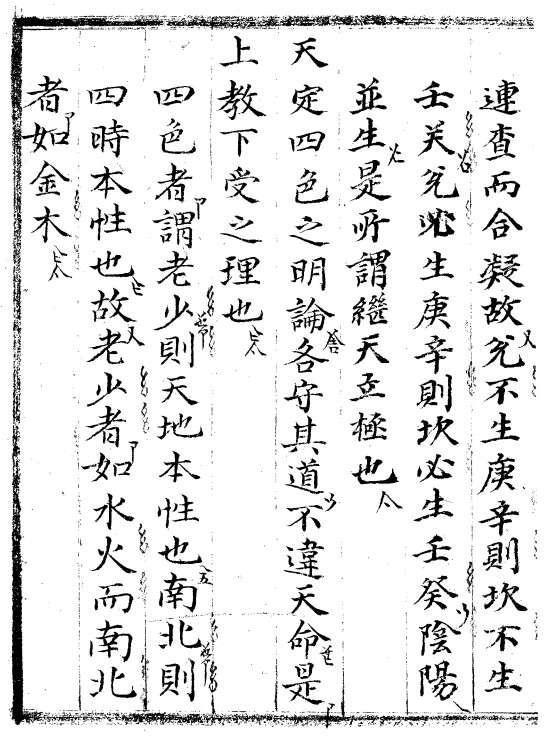 連查而合凝故兌不生庚辛則坎不生
壬癸兌必生庚辛則坎必生壬癸陰陽
並生是所謂繼天立極也
天定四色之明論各守其道不違天命是
上教下受之理也
四色者謂老少則天地本性也南北則
四時本性也故老少者如水火而南北
者如金木